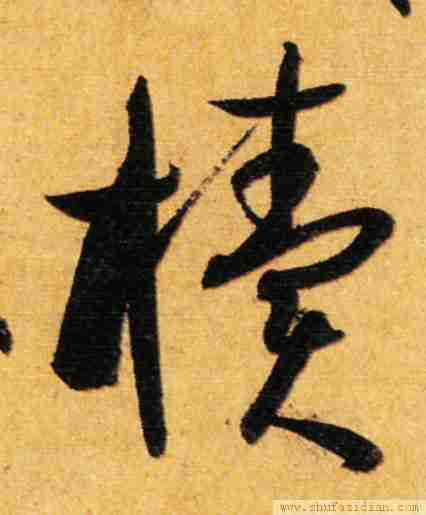 櫝
www.shufazidian.com